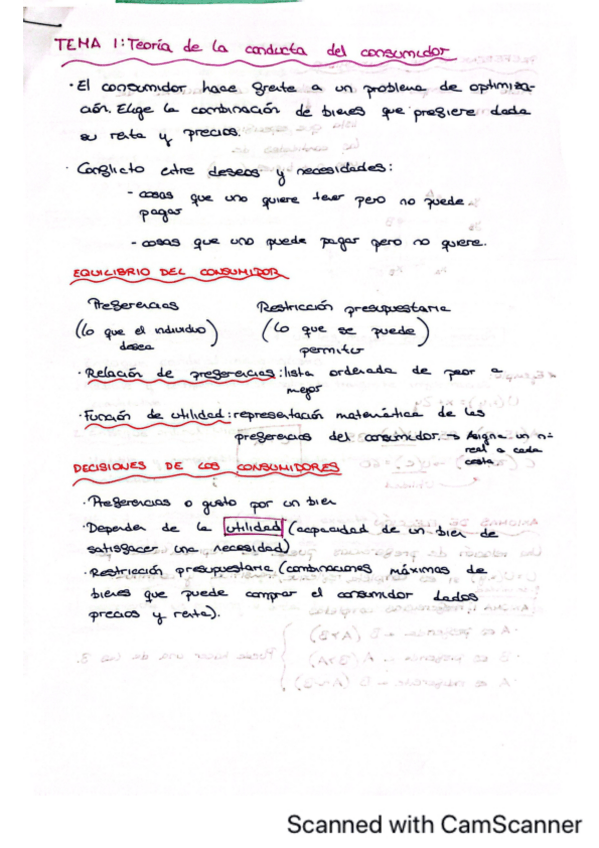 TEMA 1: Teoría de la conducta del consumidor
· El consumidor hace frente a un problema de optimiza-
ción. Elige la combinación de bienes que prefiere dada
su renta y precios.
· Conflicto entre deseos y necesidades:
- cosas que uno quiere tener pero no puede
pagar
- cosas que uno puede pagar pero no quiere.
EQUILIBRIO DEL CONSUMIDOR
Preferencias Restricción presupuestaria
(lo que el individuo desea) (lo que se puede permitir)
· Relación de preferencias: lista ordenada de peor a
mejor
· Función de utilidad: representación matemática de las
preferencias del consumidor. → Asigna un nº
real a cada
cesta
DECISIONES DE LOS CONSUMIDORES
· Preferencias o gusto por un bien
· Depender de la utilidad (capacidad de un bien de
satisfacer una necesidad)
· Restricción presupuestaria (combinaciones máximas de
bienes que puede comprar el consumidor dados
precios y renta).
Scanned with CamScanner